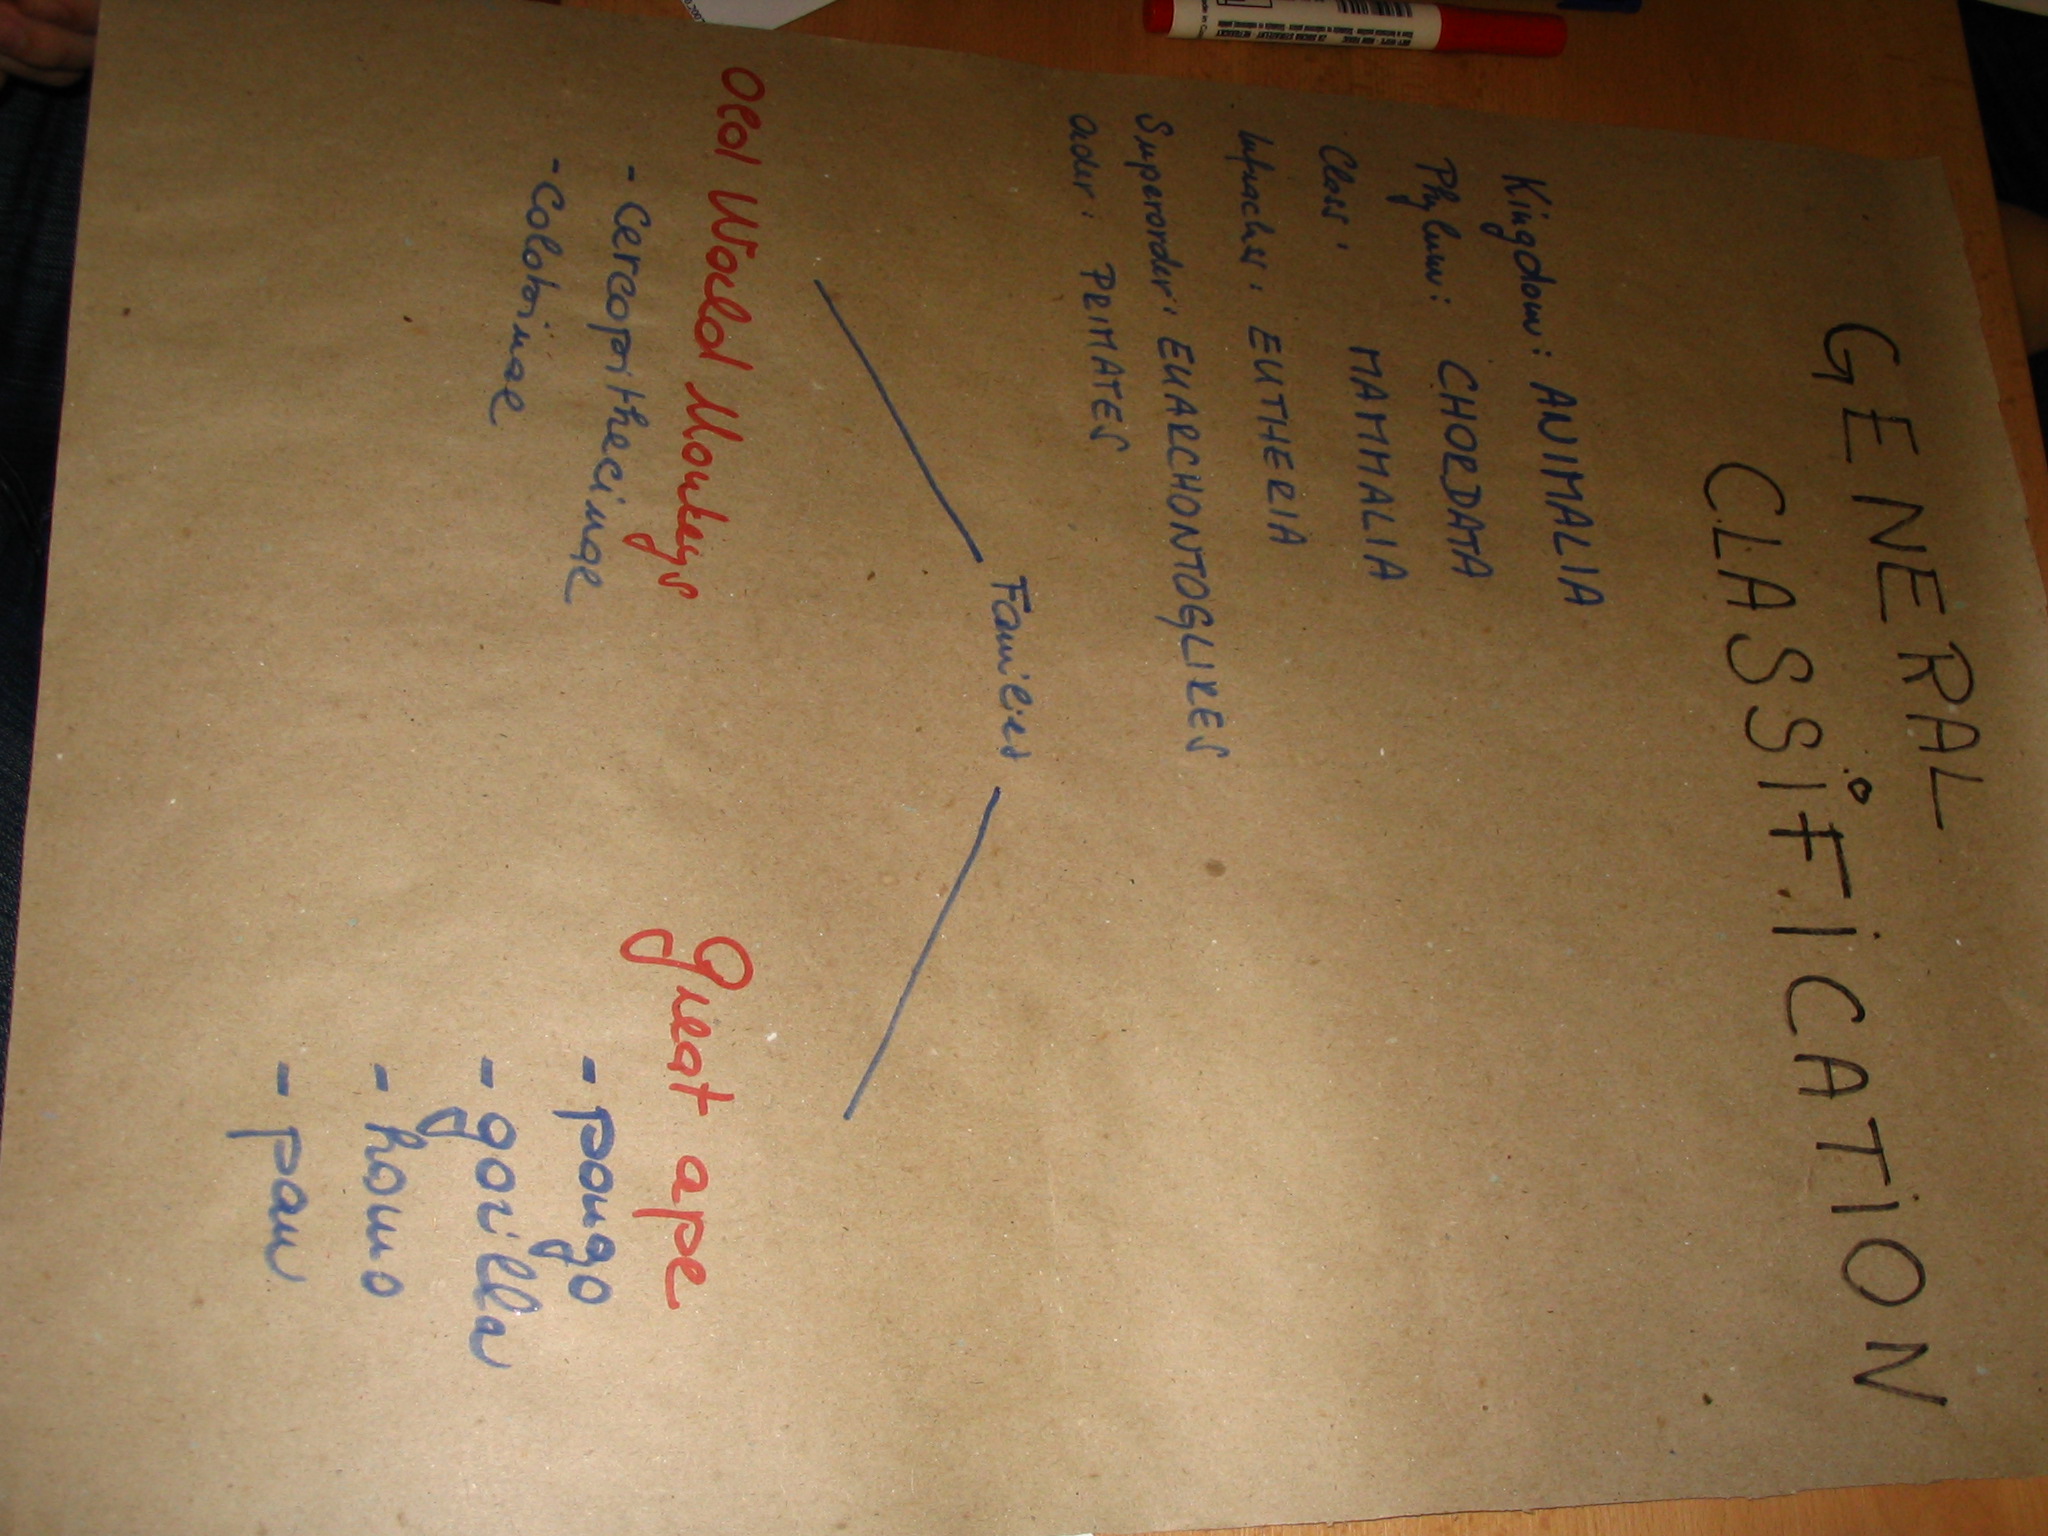 GENERAL
CLASSIFICATION
Kingdom: ANIMALIA
Phylum: CHORDATA
Class: MAMMALIA
Infraclass: EUTHERIA
Superorder: EUARCHONTOGLIRES
Order: PRIMATES
Families
Old World Monkeys
- Cercopithecinae
- Colobinae
Great ape
- pongo
- gorilla
- homo
- pan